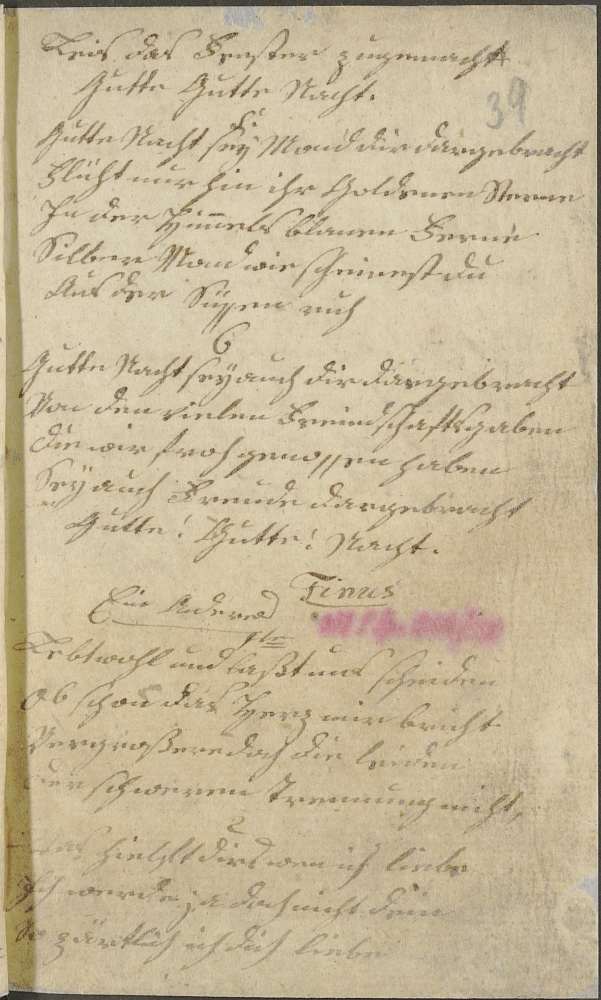 Leis das Fenster zugemacht
Gutte Gutte Nacht.
39
Gutte Nacht sey Mond dir dargebracht
Blücht nur hin ihr Goldenen Sterne
In der Himels blauen Ferne
Silber Mond wie scheinest du
Aus der Süsen ruh
6
Gutte Nacht sey auch dir dargebracht
Von den vielen Freindschaftsgaben
Die wir froh genossen haben
Sey auch Freunde dargebracht
Gutte! Gutte! Nacht.
Finus
Ein Anderes
1te
Lebt wohl und laßt uns scheiden
Ob schon das Herz mir bricht
Vergrößere doch die leiden
der schweren Trennung nicht,
2
dir wen ich liebe
Ich werde ja doch nicht dein
So zärtlich ich dich liebe